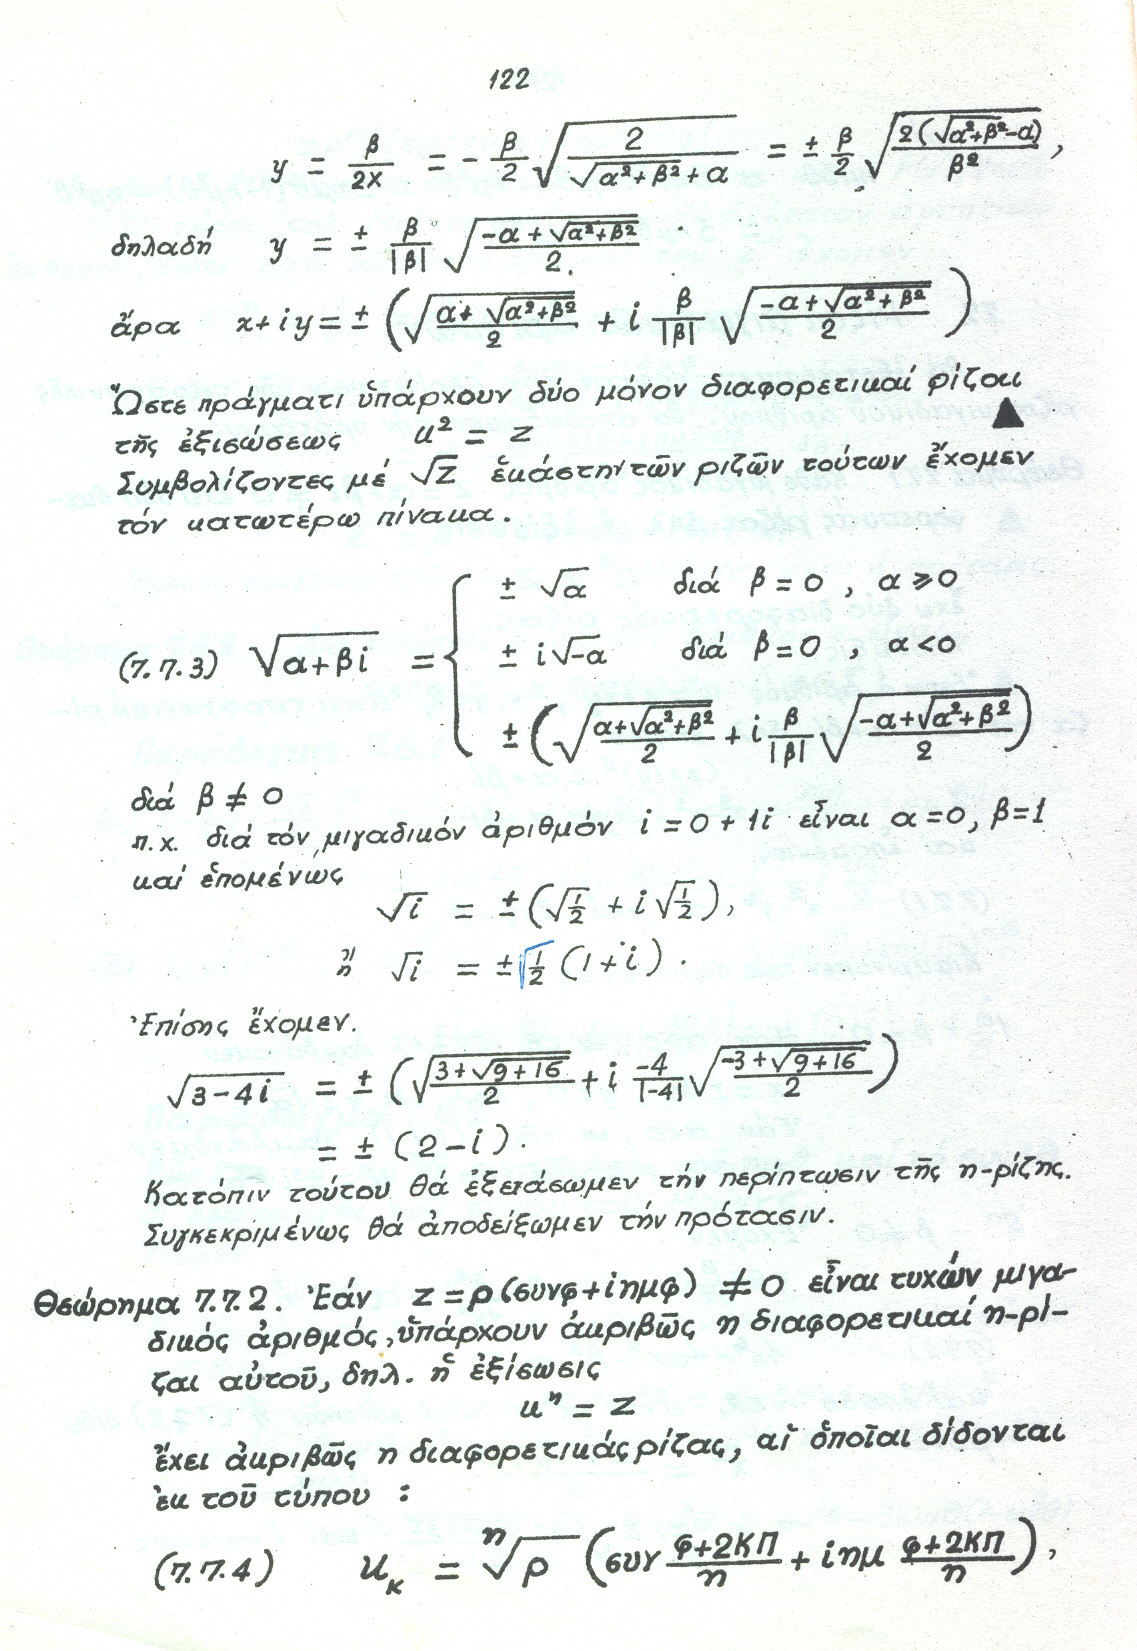 122
y = β/2x = - β/2 √(2/(√(α²+β²)+α)) = ± β/2 √(2(√(α²+β²)-α)/β²) ,
δηλαδή y = ± β/|β| √((-α+√(α²+β²))/2) .
ἄρα x+iy = ± ( √((α+√(α²+β²))/2) + i β/|β| √((-α+√(α²+β²))/2) )
Ὥστε πράγματι ὑπάρχουν δύο μόνον διαφορετικαί ρίζαι
τῆς ἐξισώσεως u² = z ▲
Συμβολίζοντες μέ √z ἑκάστην τῶν ριζῶν τούτων ἔχομεν
τόν κατωτέρω πίνακα.
± √α διά β = 0 , α ≥ 0
(7.7.3) √(α+βi) = { ± i√-α διά β = 0 , α < 0
± ( √((α+√(α²+β²))/2) + i β/|β| √((-α+√(α²+β²))/2) )
διά β ≠ 0
π.χ. διά τόν μιγαδικόν ἀριθμόν i = 0 + 1i εἶναι α = 0, β = 1
καί ἑπομένως
√i = ± (√(1/2) + i √(1/2)),
ἤ √i = ± √(1/2) (1 + i) .
Ἐπίσης ἔχομεν.
√(3-4i) = ± ( √((3+√(9+16))/2) + i -4/|-4| √((-3+√(9+16))/2) )
= ± (2-i) .
Κατόπιν τούτου θά ἐξετάσωμεν τήν περίπτωσιν τῆς n-ρίζης.
Συγκεκριμένως θά ἀποδείξωμεν τήν πρότασιν.
Θεώρημα 7.7.2. Ἐάν z = ρ(συνφ + iημφ) ≠ 0 εἶναι τυχών μιγα-
δικός ἀριθμός, ὑπάρχουν ἀκριβῶς n διαφορετικαί n-ρί-
ζαι αὐτοῦ, δηλ. ἡ ἐξίσωσις
uⁿ = z
ἔχει ἀκριβῶς n διαφορετικάς ρίζας, αἱ ὁποῖαι δίδονται
ἐκ τοῦ τύπου :
(7.7.4) u_κ = ⁿ√ρ ( συν (φ+2κπ)/n + iημ (φ+2κπ)/n ) ,